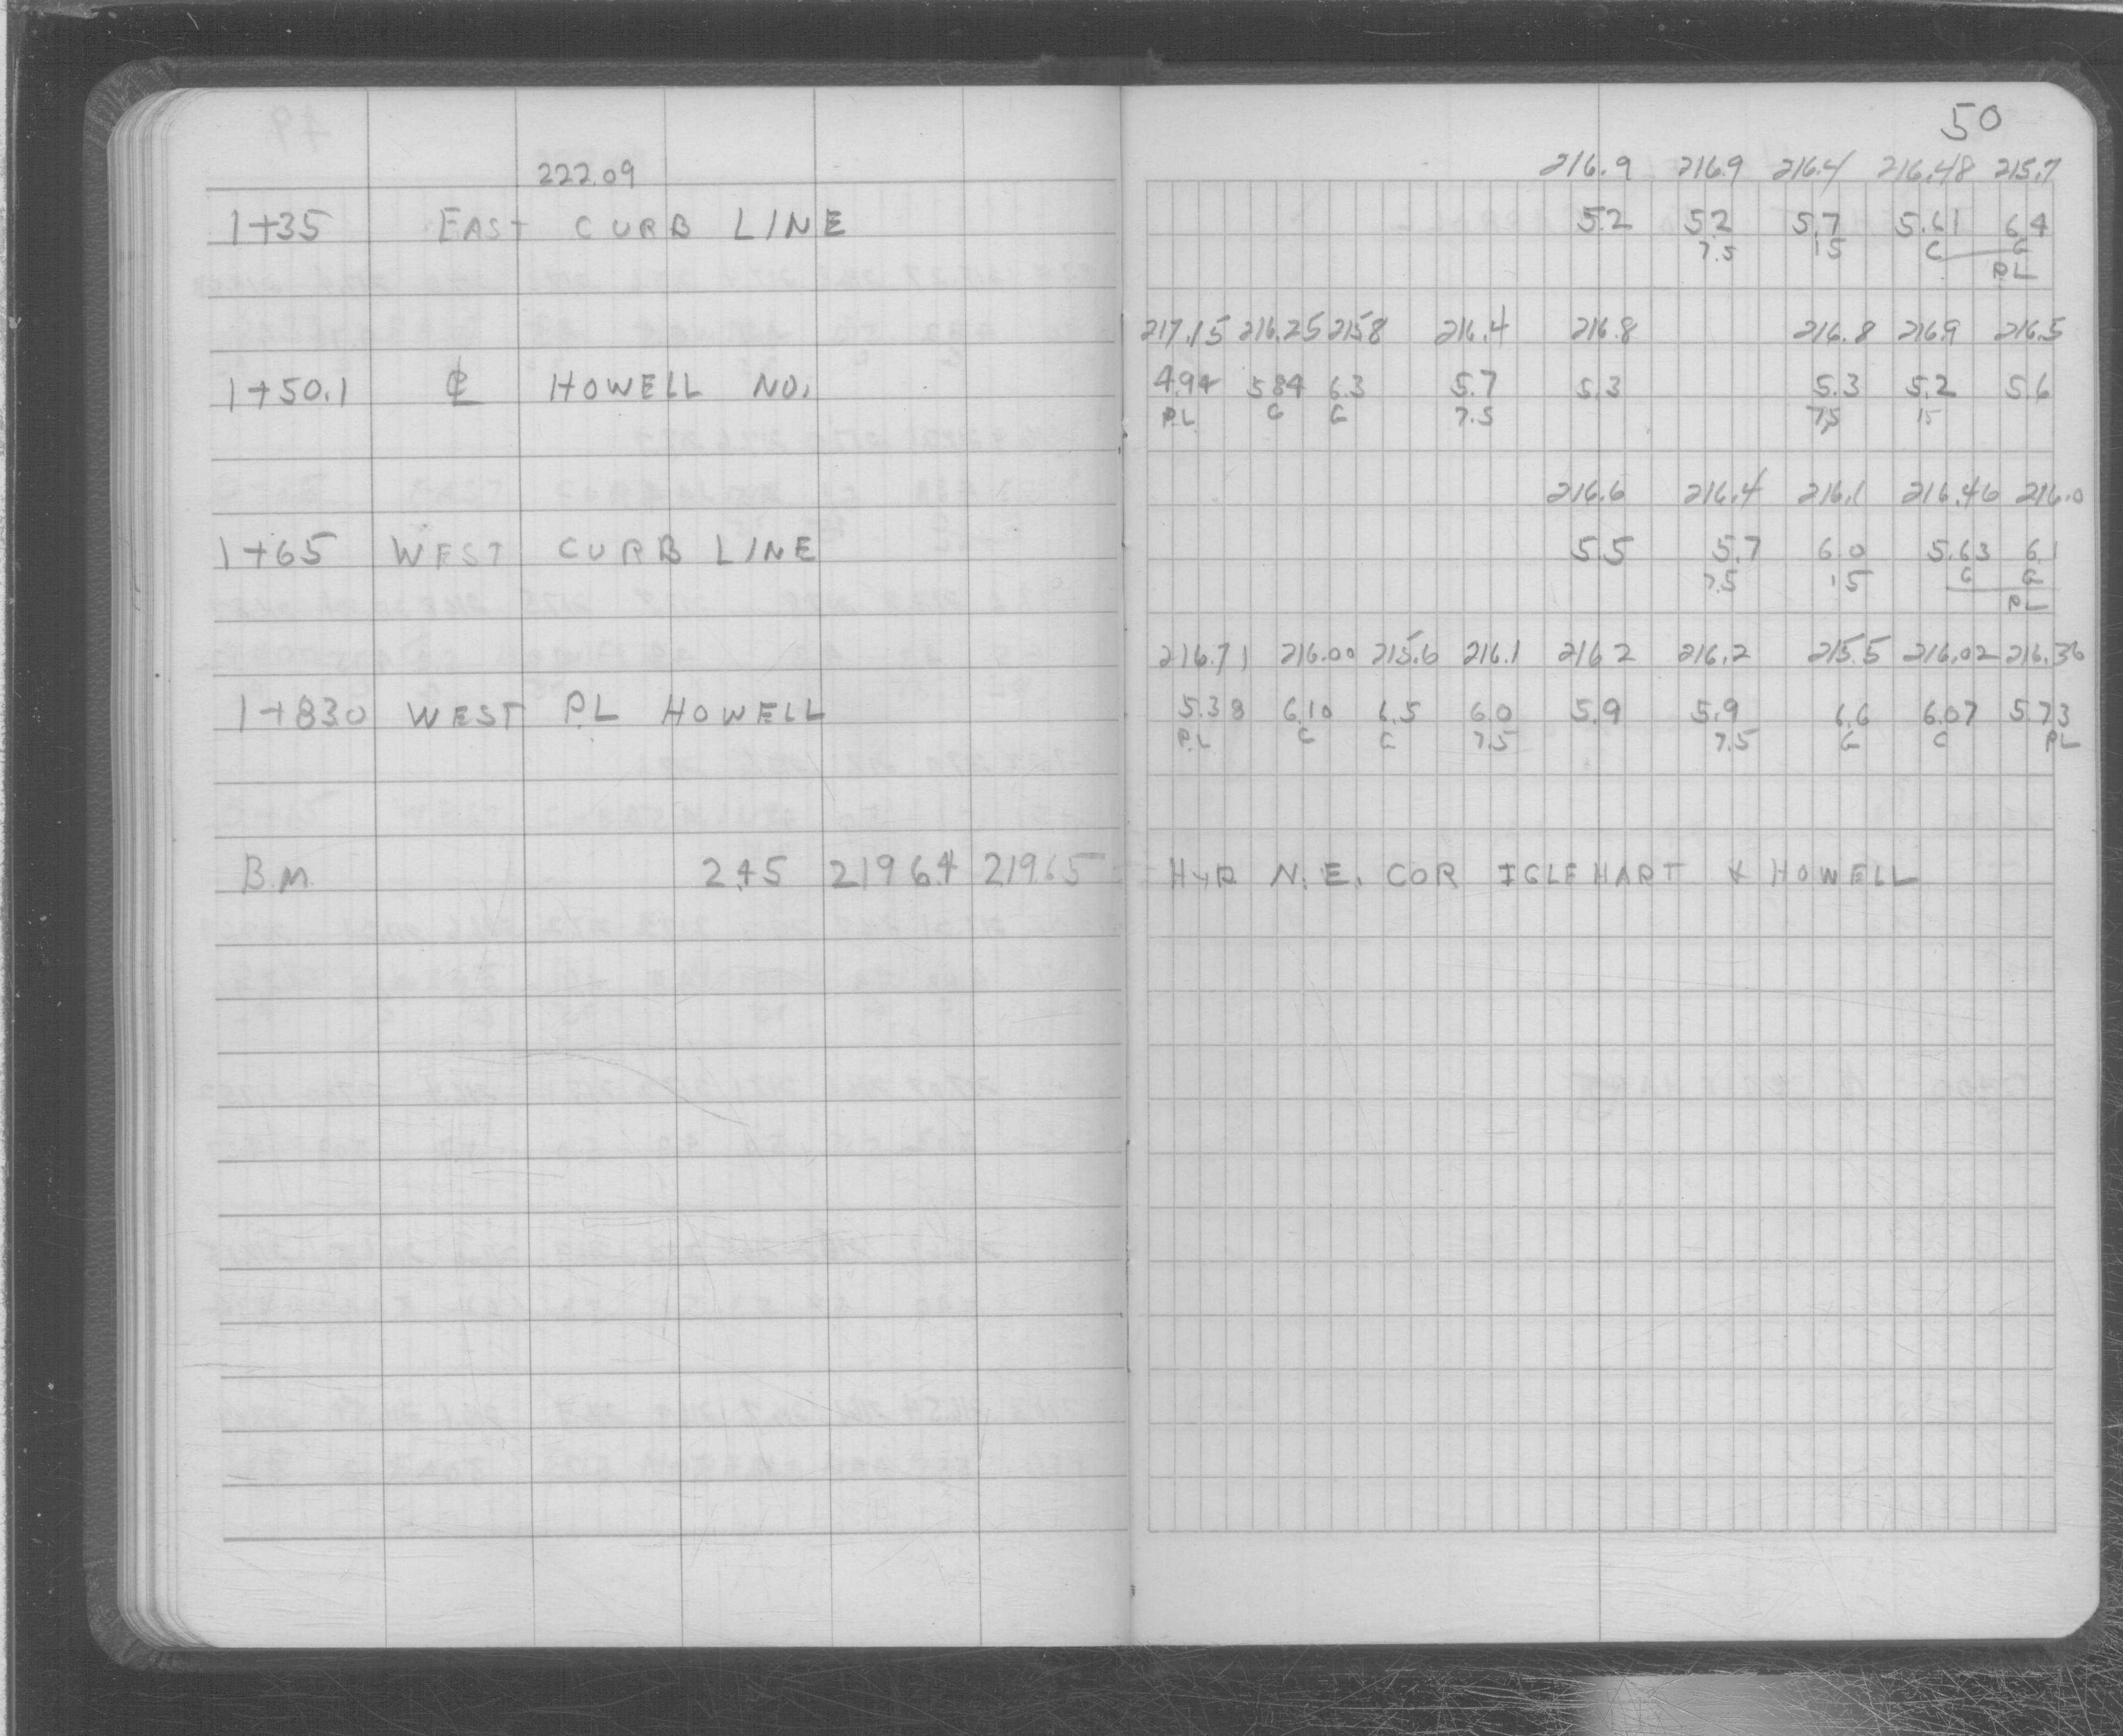 50
222.09
216.9 216.9 216.4 216.48 215.7
1+35 EAST CURB LINE
5.2 5.2 5.7 5.61 6.4
7.5 15 C G
PL
217.15 216.25 215.8 216.4 216.8 216.8 216.9 216.5
1+50.1 ℄ HOWELL NO.
4.94 5.84 6.3 5.7 5.3 5.3 5.2 5.6
PL C G 7.5 7.5 15
216.6 216.4 216.1 216.46 216.0
1+65 WEST CURB LINE
5.5 5.7 6.0 5.63 6.1
7.5 15 C G
PL
216.71 216.00 215.6 216.1 216.2 216.2 215.5 216.02 216.36
1+83.0 WEST PL HOWELL
5.38 6.10 6.5 6.0 5.9 5.9 6.6 6.07 5.73
PL C G 7.5 7.5 G C PL
B.M. 2.45 219.64 219.65 HYD N.E. COR IGLEHART & HOWELL